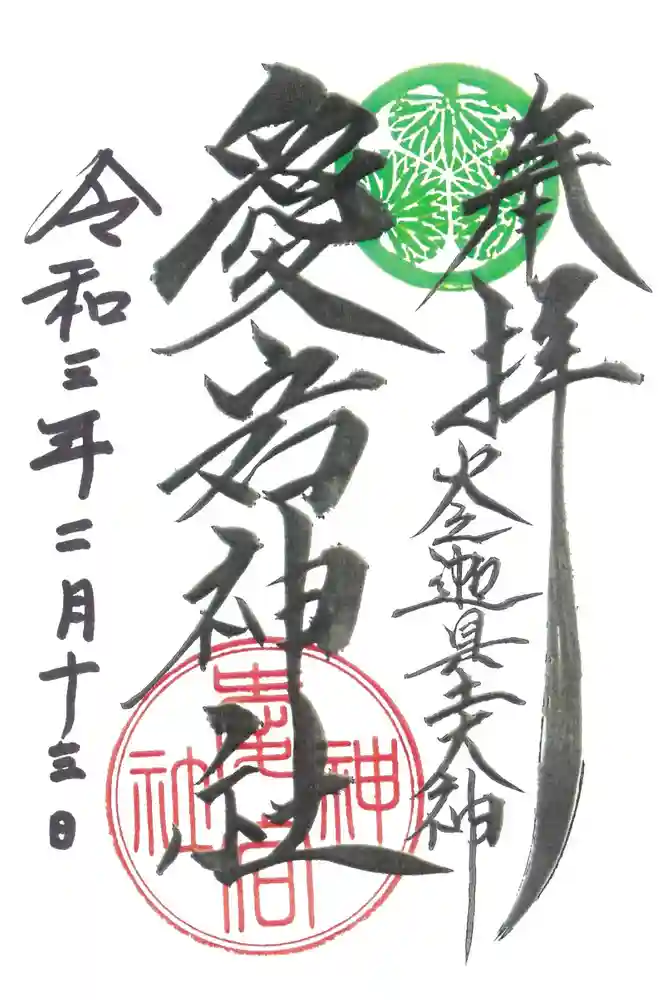 奉拝
火之迦具土大神
愛宕神社
令和三年二月十三日
愛宕神社